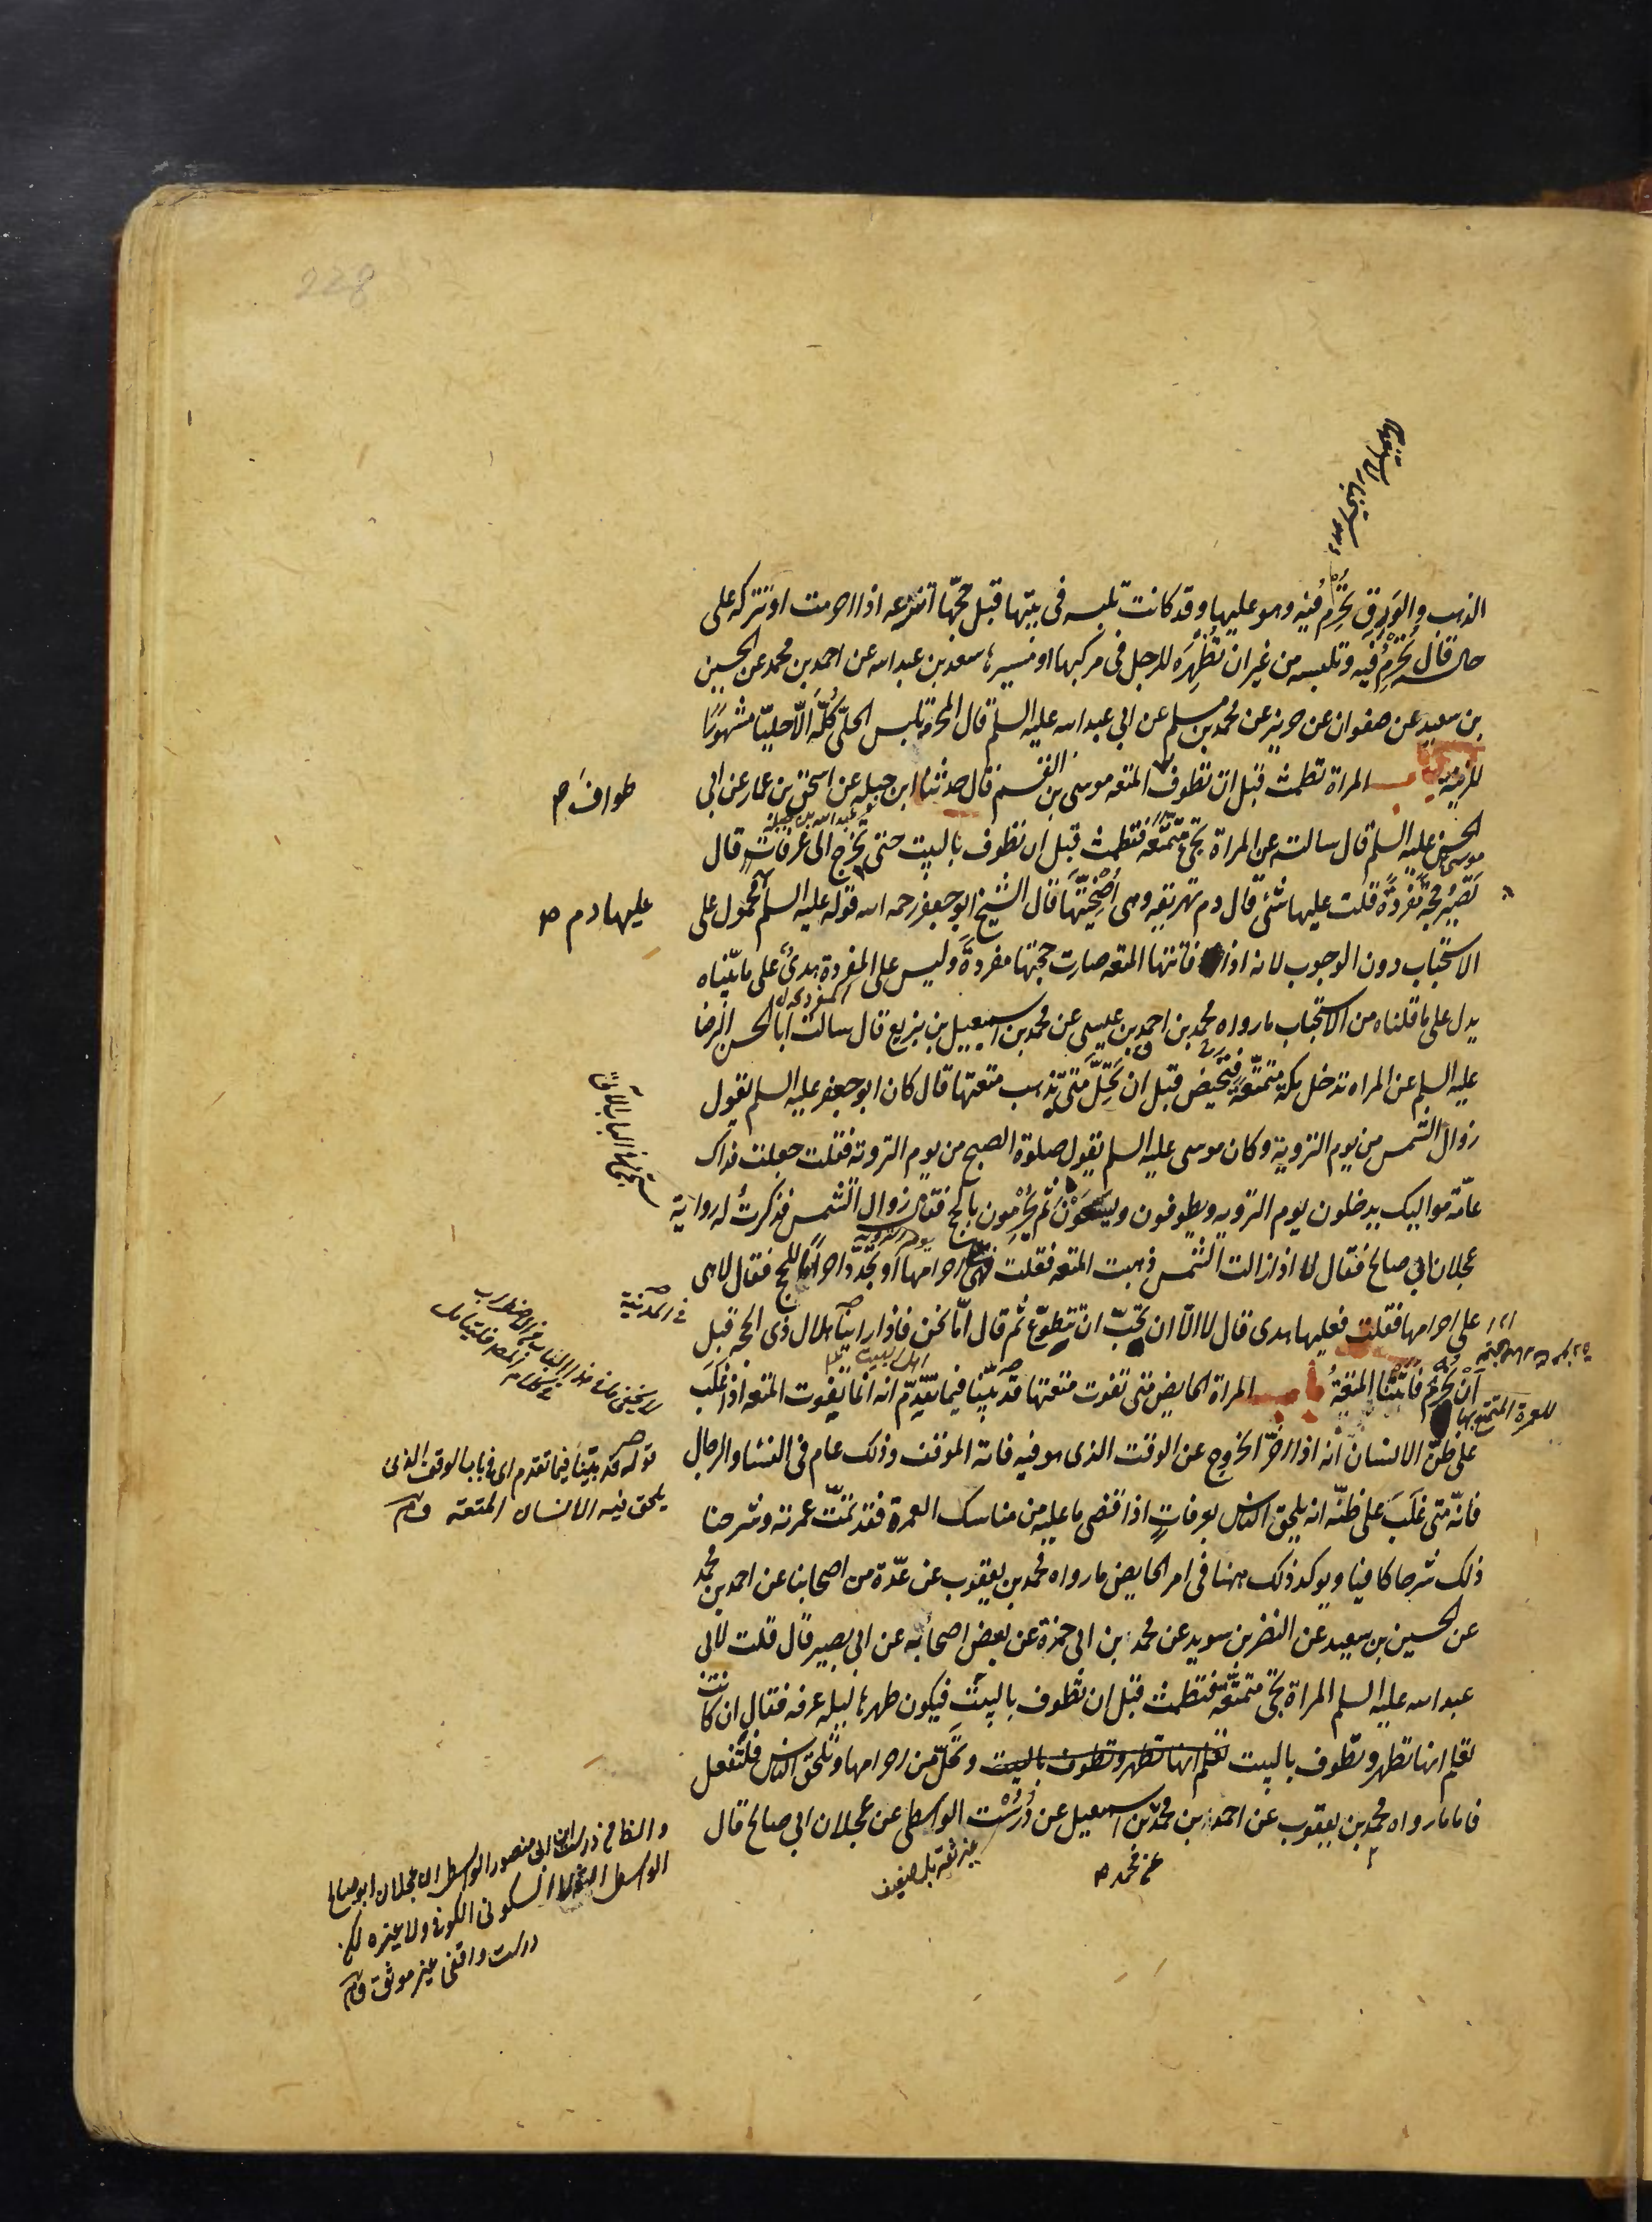 228
الذهب والورق تحرم فيه وهو عليها وقد كانت تلبسه في بيتها قبل حجها اتنزعه اذا احرمت او تتركه على
حاله قال تحرم فيه وتلبسه من غير ان تظهره للرجل في مركبها او مسيرها سعد بن عبدالله عن احمد بن محمد عن الحسين
بن سعيد عن صفوان عن حريز عن محمد بن مسلم عن ابي عبدالله عليه السلم قال المحرمة تلبس الحلي كله الا حليا مشهورا
للزينة باب المراة تطمث قبل ان تطوف المتعه موسى بن القسم قال حدثنا ابن جبله عن اسحق بن عمار عن ابي
طواف
عبد الله بن جبلة
الحسن عليه السلم قال سالته عن المراة تجئ متمتعه فتطمث قبل ان تطوف بالبيت حتى تخرج الى عرفات قال
موسى
تصير حجة مفردة قلت عليها شئ قال دم تهريقه وهي اضحيتها قال الشيخ ابو جعفر رحمه الله قوله عليه السلم محمول على
عليها دم
الاستحباب دون الوجوب لانه اذا فاتتها المتعه صارت حجتها مفردة وليس على المفردة هدى على ما بيناه
يدل على ما قلناه من الاستحباب ما رواه محمد بن احمد بن عيسى عن محمد بن اسمعيل بن بزيع قال سالت ابا الحسن الرضا
عليه السلم عن المراه تدخل مكة متمتعة فتحيض قبل ان تحل متى تذهب متعتها قال كان ابو جعفر عليه السلم يقول
زوال الشمس من يوم التروية وكان موسى عليه السلم يقول صلوة الصبح من يوم التروية فقلت جعلت فداك
عامة مواليك يدخلون يوم التروية ويطوفون ويسعون ثم يحرمون بالحج فقال زوال الشمس فذكرت له رواية
يوم التروية
عجلان ابي صالح فقال لا اذا زالت الشمس ذهبت المتعه فقلت فهي على احرامها او تجدد احرامها للحج فقال لا هي
على احرامها فقلت فعليها هدى قال لا الا ان تحب ان تتطوع ثم قال اما نحن فاذا راينا هلال ذي الحجه قبل
في المدينة
اهل البيت
ان نحرم فاتتنا المتعة باب المراة الحايض متى تفوت متعتها قد بينا فيما تقدم انه انما يفوت المتعه اذا غلب
للعمرة المتمتع بها
على ظن الانسان انه اذا اخر الخروج عن الوقت الذى هو فيه فاته الموقف وذلك عام في النساء والرجال
قوله قد بينا فيما تقدم اى في باب الوقت الذى
يلحق فيه الانسان المتعة
فانه متى غلب على ظنه انه يلحق الناس بعرفات اذا قضى ما عليه من مناسك العمرة فقد تمت عمرته وشرحنا
ذلك شرحا كافيا ويوكد ذلك ههنا في امر الحايض ما رواه محمد بن يعقوب عن عدة من اصحابنا عن احمد بن محمد
عن الحسين بن سعيد عن النضر بن سويد عن محمد بن ابي حمزة عن بعض اصحابه عن ابي بصير قال قلت لابي
عبدالله عليه السلم المراة تجئ متمتعة فتطمث قبل ان تطوف بالبيت فيكون طهرها ليلة عرفه فقال ان كانت
تعلم انها تطهر وتطوف بالبيت تعلم انها تطهر وتطوف بالبيت وتحل من احرامها وتلحق الناس فلتفعل
فاما ما رواه محمد بن يعقوب عن احمد بن محمد بن اسمعيل عن درست الواسطي عن عجلان ابي صالح قال
عن محمد
غير ثقة بل ضعيف
والظاهر درست ابن ابي منصور الواسطي ان عجلان ابو صالح
الواسطي السكوني الكوفي ولا غيره
درست واقفي غير موثق